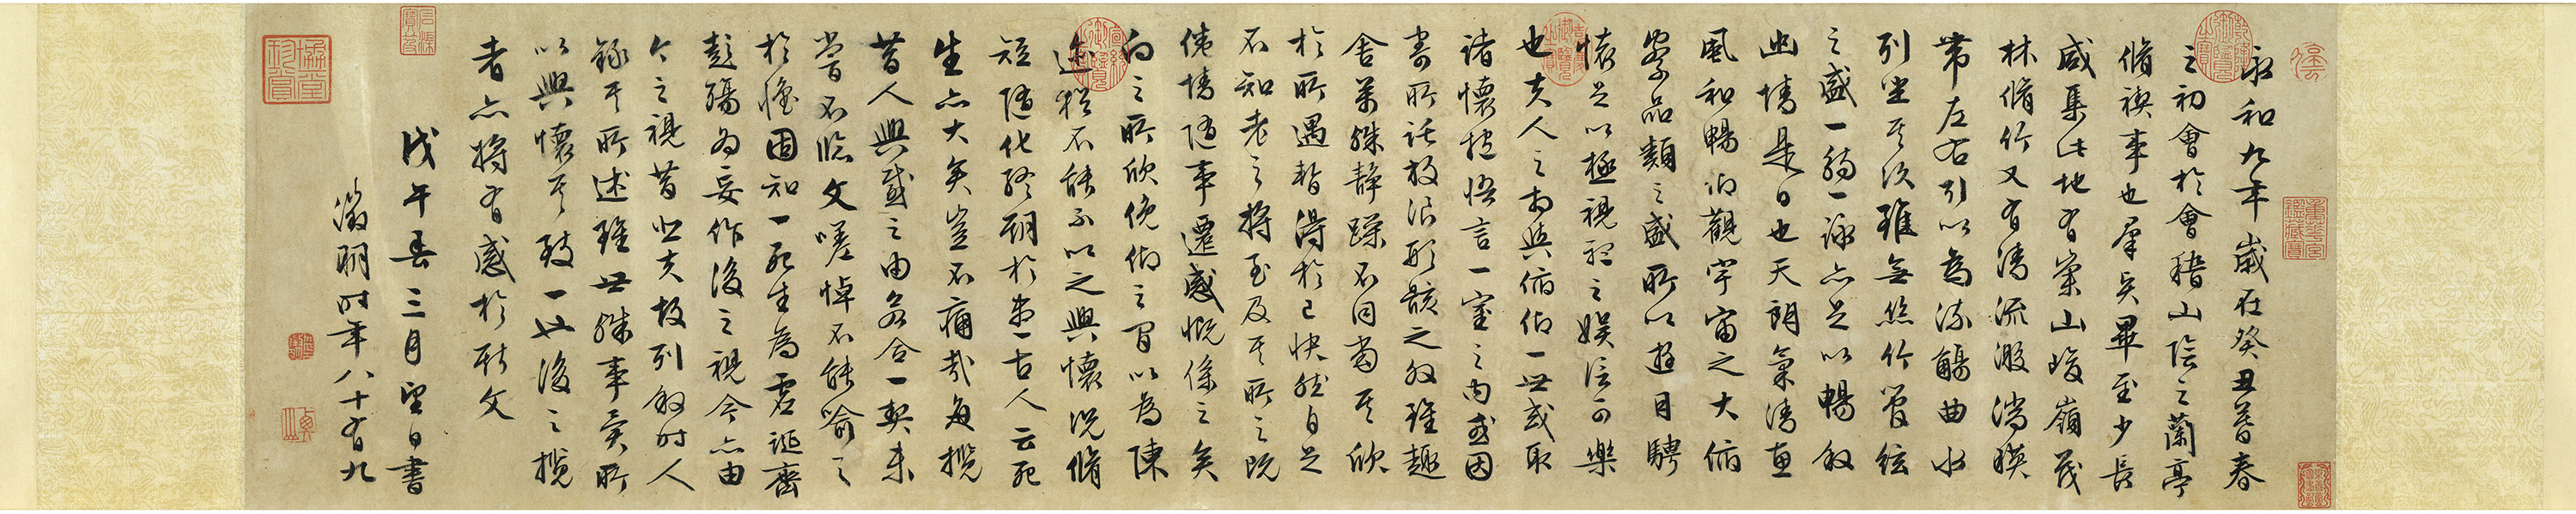 永和九年歲在癸丑暮春
之初會於會稽山陰之蘭亭
脩禊事也羣賢畢至少長
咸集此地有崇山峻嶺茂
林脩竹又有清流激湍暎
帶左右引以為流觴曲水
列坐其次雖無絲竹管絃
之盛一觴一詠亦足以暢敘
幽情是日也天朗氣清惠
風和暢仰觀宇宙之大俯
察品類之盛所以遊目騁
懷足以極視聽之娛信可樂
也夫人之相與俯仰一世或取
諸懷抱悟言一室之內或因
寄所託放浪形骸之外雖趣
舍萬殊靜躁不同當其欣
於所遇暫得於己快然自足
不知老之將至及其所之既
倦情隨事遷感慨係之矣
向之所欣俛仰之間以為陳
迹猶不能不以之興懷況脩
短隨化終期於盡古人云死
生亦大矣豈不痛哉每攬
昔人興感之由若合一契未
嘗不臨文嗟悼不能喻之
於懷固知一死生為虛誕齊
彭殤為妄作後之視今亦由
今之視昔悲夫故列敘時人
錄其所述雖世殊事異所
以興懷其致一也後之攬
者亦將有感於斯文
戊午春三月望日書
徵明時年八十有九
乾隆御覽之寶
嘉慶御覽之寶
宣統御覽之寶
石渠寶笈